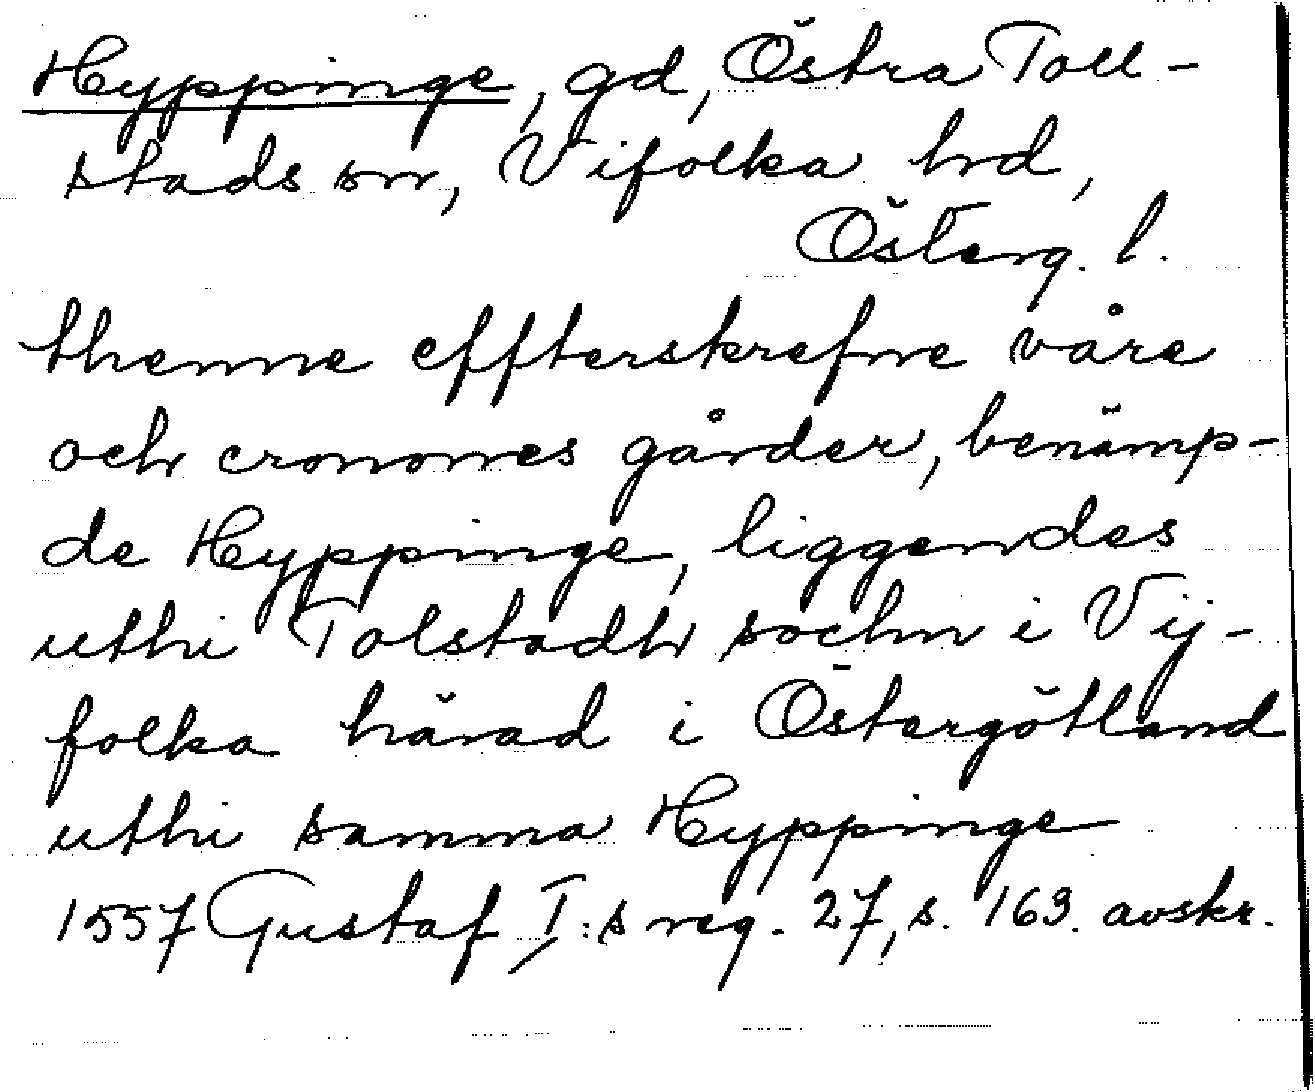 Hyppinge, gd, Östra Toll-
stads sn, Vifolka hd,
Österg. l.
thenne effterskrefne våre
och cronones gårder, benämp-
de Hyppinge, liggendes
uthi Tolstadh sochn i Vij-
folka härad i Östergötland
uthi samma Hyppinge
1557 Gustaf I:s reg. 27, s. 163. avskr.